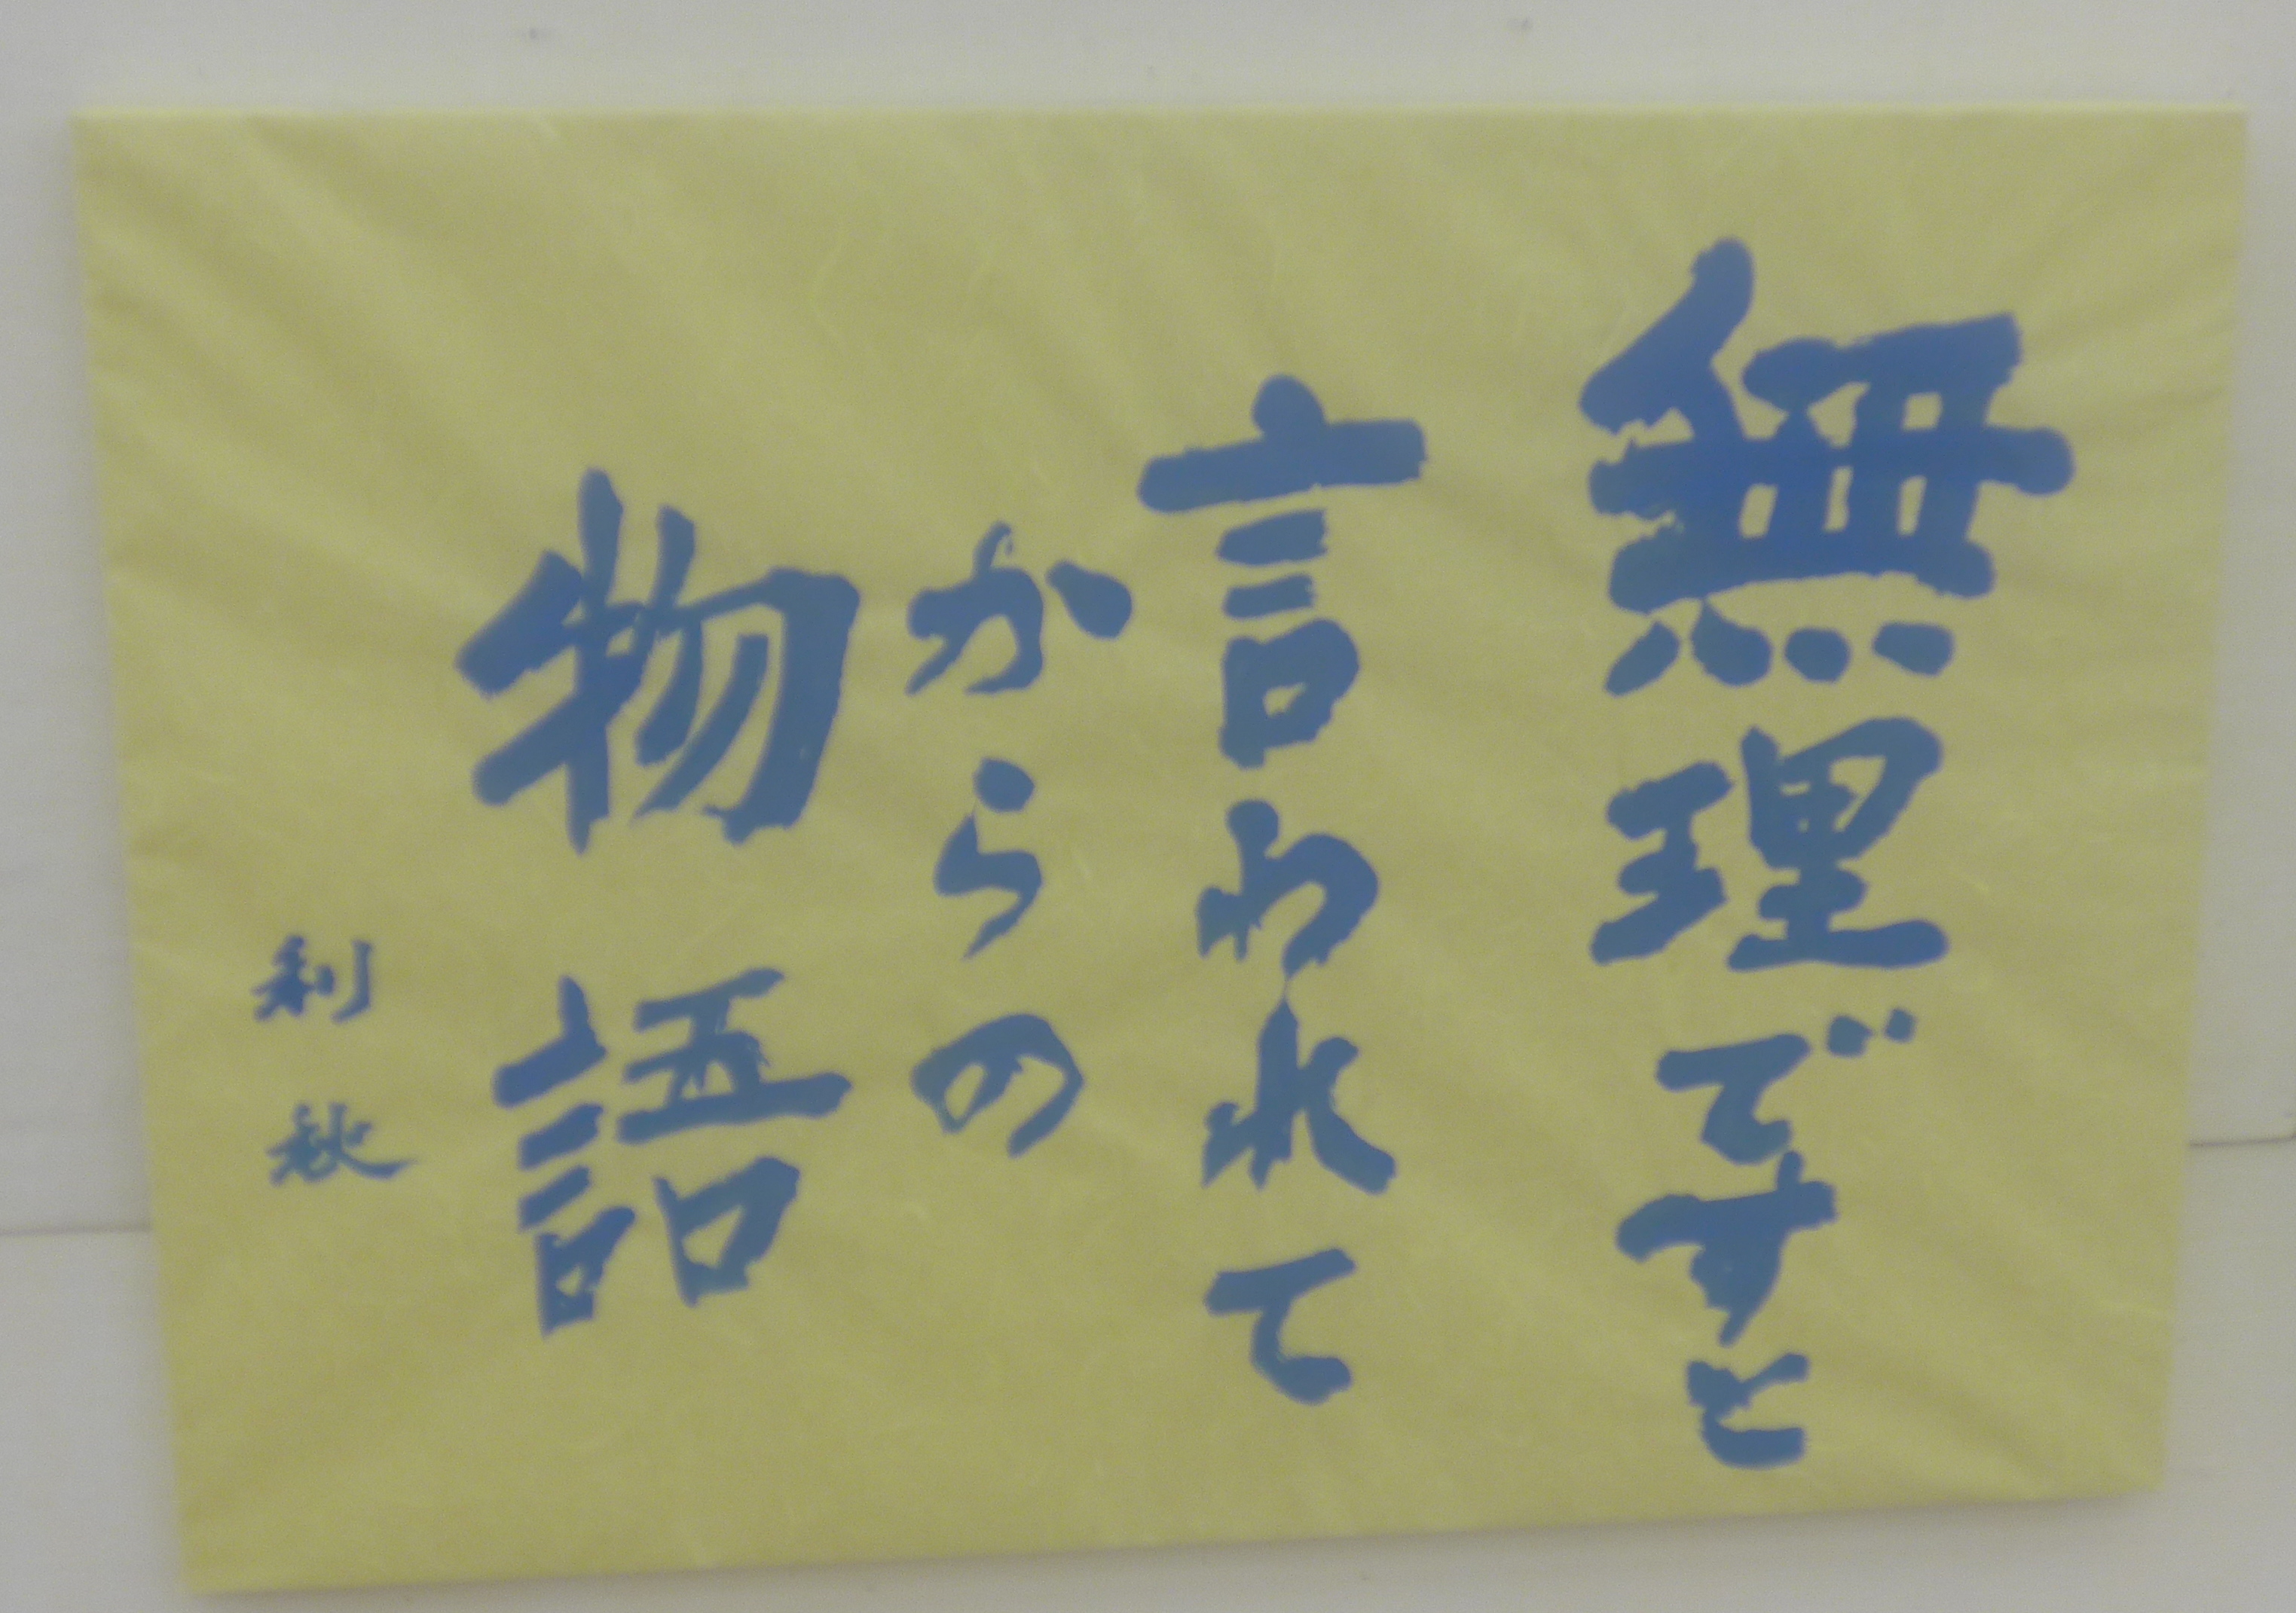 無理ですと
言われて
からの
物語
利秋